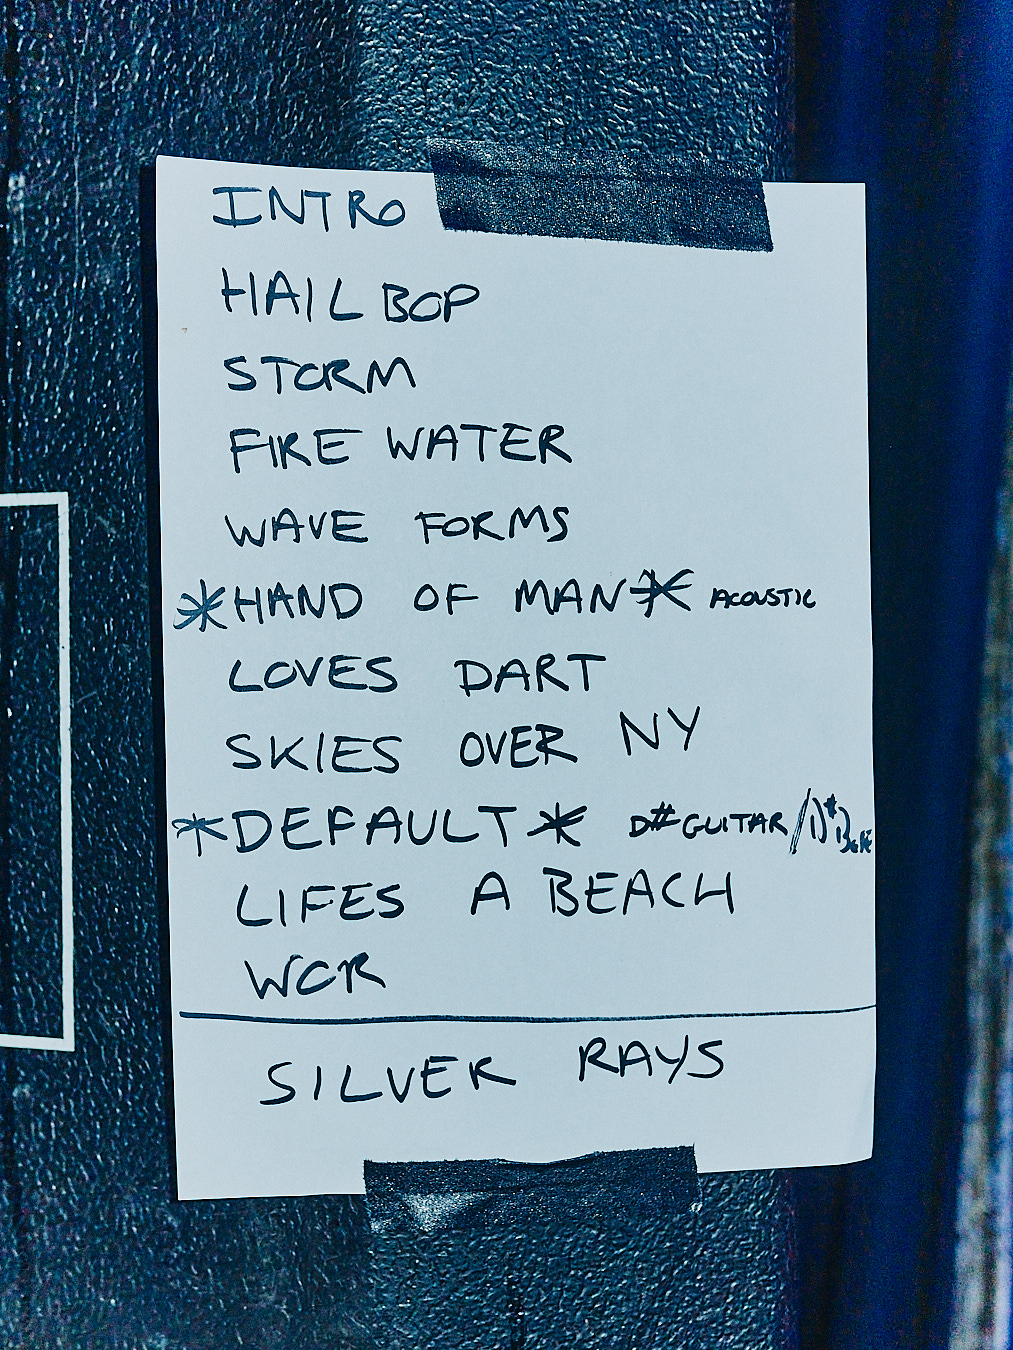 INTRO
HAIL BOP
STORM
FIRE WATER
WAVE FORMS
*HAND OF MAN* ACOUSTIC
LOVES DART
SKIES OVER NY
*DEFAULT* D# GUITAR /
LIFES A BEACH
WOR
SILVER RAYS